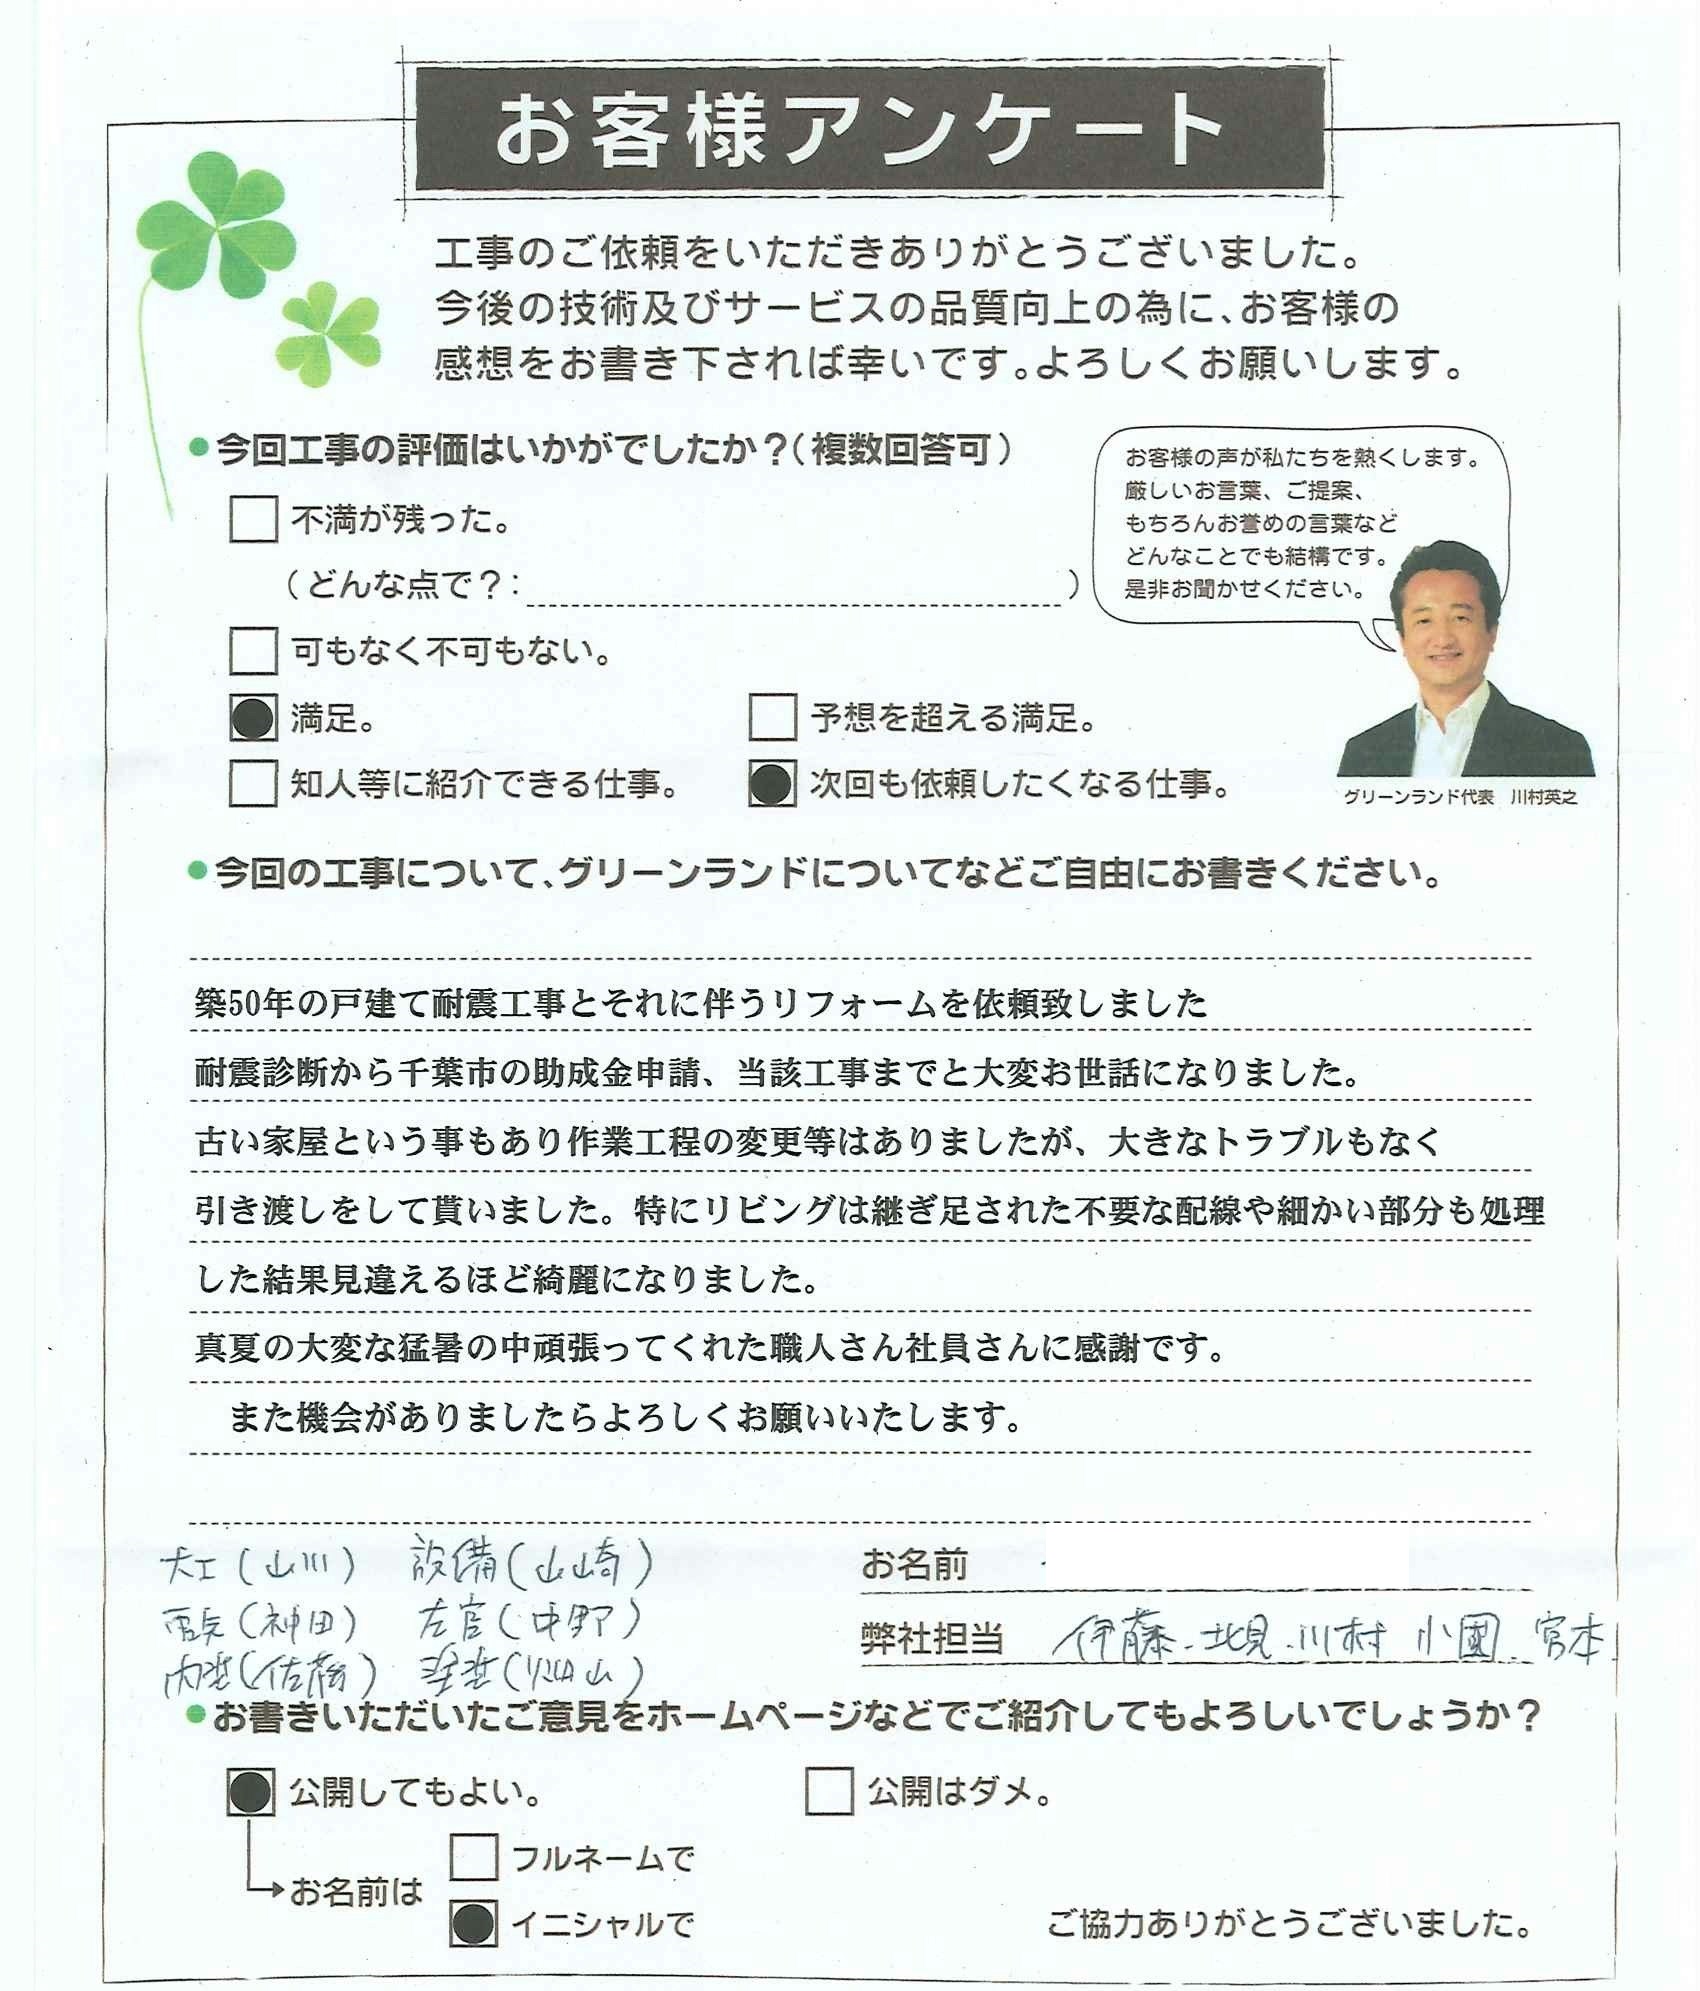 お客様アンケート
工事のご依頼をいただきありがとうございました。
今後の技術及びサービスの品質向上の為に、お客様の
感想をお書き下されば幸いです。よろしくお願いします。
●今回工事の評価はいかがでしたか？（複数回答可）
不満が残った。
（どんな点で？：　）
可もなく不可もない。
満足。　予想を超える満足。
知人等に紹介できる仕事。　次回も依頼したくなる仕事。
お客様の声が私たちを熱くします。
厳しいお言葉、ご提案、
もちろんお誉めの言葉など
どんなことでも結構です。
是非お聞かせください。
グリーンランド代表　川村英之
●今回の工事について、グリーンランドについてなどご自由にお書きください。
築50年の戸建て耐震工事とそれに伴うリフォームを依頼致しました
耐震診断から千葉市の助成金申請、当該工事までと大変お世話になりました。
古い家屋という事もあり作業工程の変更等はありましたが、大きなトラブルもなく
引き渡しをして貰いました。特にリビングは継ぎ足された不要な配線や細かい部分も処理
した結果見違えるほど綺麗になりました。
真夏の大変な猛暑の中頑張ってくれた職人さん社員さんに感謝です。
また機会がありましたらよろしくお願いいたします。
大工（山川）　設備（山崎）
電気（神田）　左官（中野）
内装（佐藤）　塗装（　山）
お名前
弊社担当　伊藤．北見．川村　小國．宮本．
●お書きいただいたご意見をホームページなどでご紹介してもよろしいでしょうか？
公開してもよい。　公開はダメ。
お名前は
フルネームで
イニシャルで
ご協力ありがとうございました。